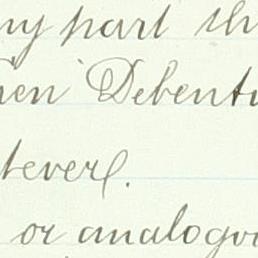 ny part th
hen Debentu
tever.
or analogou